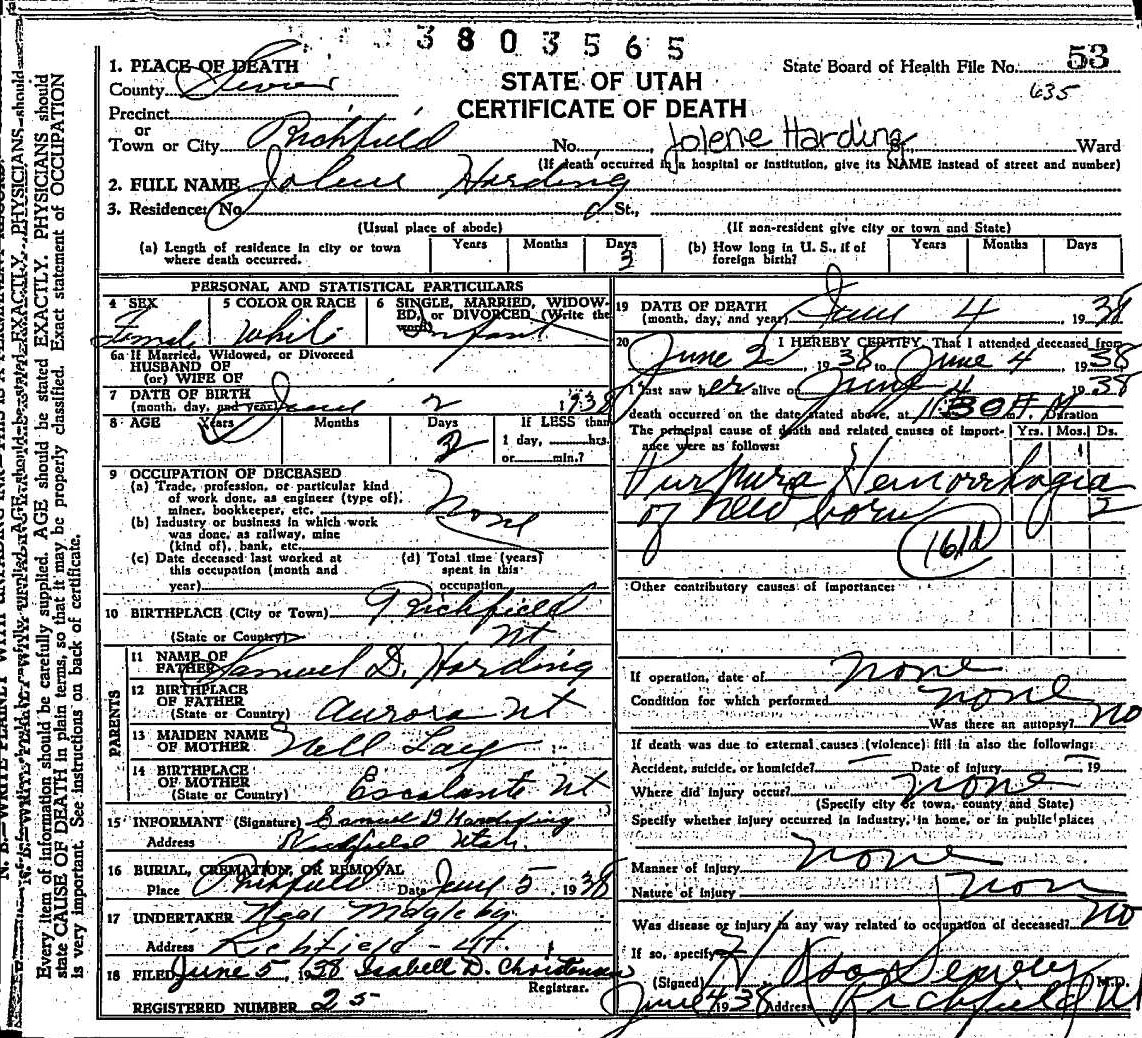 3803565
1. PLACE OF DEATH
STATE OF UTAH
CERTIFICATE OF DEATH
State Board of Health File No. 53
635
County Sevier
Precinct
or
Town or City Richfield No. Jolene Harding Ward
(If death occurred in a hospital or institution, give its NAME instead of street and number)
2. FULL NAME Jolene Harding
3. Residence: No. St.,
(Usual place of abode) (If non-resident give city or town and State)
(a) Length of residence in city or town where death occurred. Years Months Days 2
(b) How long in U. S., if of foreign birth? Years Months Days
PERSONAL AND STATISTICAL PARTICULARS
4 SEX 5 COLOR OR RACE 6 SINGLE, MARRIED, WIDOWED, or DIVORCED (Write the word)
Female White Infant
6a If Married, Widowed, or Divorced
HUSBAND OF
(or) WIFE OF
7 DATE OF BIRTH
(month, day, and year) June 2 1938
8 AGE Years Months Days If LESS than
2 1 day, hrs.
or min.?
9 OCCUPATION OF DECEASED
(a) Trade, profession, or particular kind
of work done, as engineer (type of),
miner, bookkeeper, etc. None
(b) Industry or business in which work
was done, as railway, mine
(kind of), bank, etc.
(c) Date deceased last worked at (d) Total time (years)
this occupation (month and spent in this
year) occupation
10 BIRTHPLACE (City or Town) Richfield
(State or Country) Ut
PARENTS
11 NAME OF
FATHER Samuel D. Harding
12 BIRTHPLACE
OF FATHER
(State or Country) Aurora Ut
13 MAIDEN NAME
OF MOTHER Nell Lay
14 BIRTHPLACE
OF MOTHER
(State or Country) Escalante Ut
15 INFORMANT (Signature) Samuel D Harding
Address Richfield Utah
16 BURIAL, CREMATION, OR REMOVAL
Place Richfield Date June 5, 1938
17 UNDERTAKER Neal Magleby
Address Richfield - Ut.
18 FILED June 5, 1938 Isabell D. Christensen
Registrar.
REGISTERED NUMBER 25
19 DATE OF DEATH
(month, day, and year) June 4 1938
20 I HEREBY CERTIFY, That I attended deceased from
June 2, 1938 to June 4 1938
I last saw her alive on June 4 1938
death occurred on the date stated above, at 11:30 P m. Duration
The principal cause of death and related causes of importance were as follows: Yrs. Mos. Ds.
Purpura Hemorrhagia
of new born 2
161d
Other contributory causes of importance:
If operation, date of none
Condition for which performed none
Was there an autopsy? No
If death was due to external causes (violence) fill in also the following:
Accident, suicide, or homicide? — Date of injury — 19
Where did injury occur? none
(Specify city or town, county and State)
Specify whether injury occurred in industry, in home, or in public place:
Manner of injury none
Nature of injury non
Was disease or injury in any way related to occupation of deceased? no
If so, specify
(Signed) M.D.
June 4 1938 Address Richfield Ut
Every item of information should be carefully supplied. AGE should be stated EXACTLY. PHYSICIANS should
state CAUSE OF DEATH in plain terms, so that it may be properly classified. Exact statement of OCCUPATION
is very important. See instructions on back of certificate.